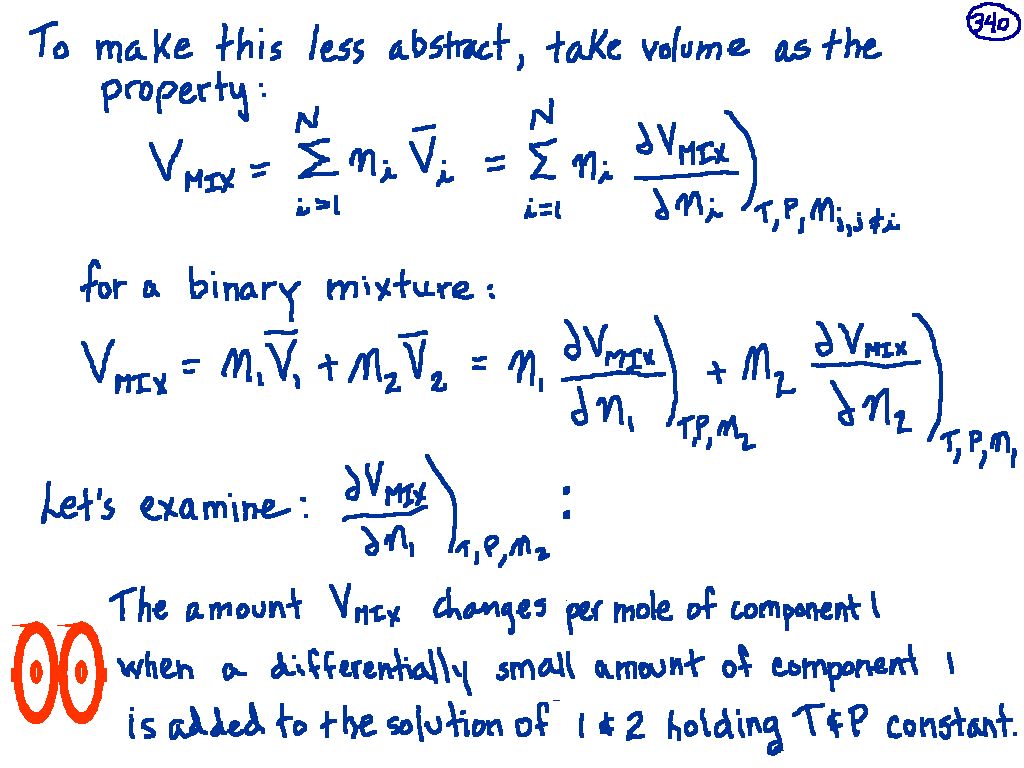 340
To make this less abstract, take volume as the
property:
V_MIX = Σ_{i=1}^{N} n_i V̄_i = Σ_{i=1}^{N} n_i ∂V_MIX/∂n_i )_{T,P,n_j,j≠i}
for a binary mixture:
V_MIX = n_1 V̄_1 + n_2 V̄_2 = n_1 ∂V_MIX/∂n_1 )_{T,P,n_2} + n_2 ∂V_MIX/∂n_2 )_{T,P,n_1}
Let's examine: ∂V_MIX/∂n_1 )_{T,P,n_2} :
The amount V_MIX changes per mole of component 1
when a differentially small amount of component 1
is added to the solution of 1 & 2 holding T & P constant.